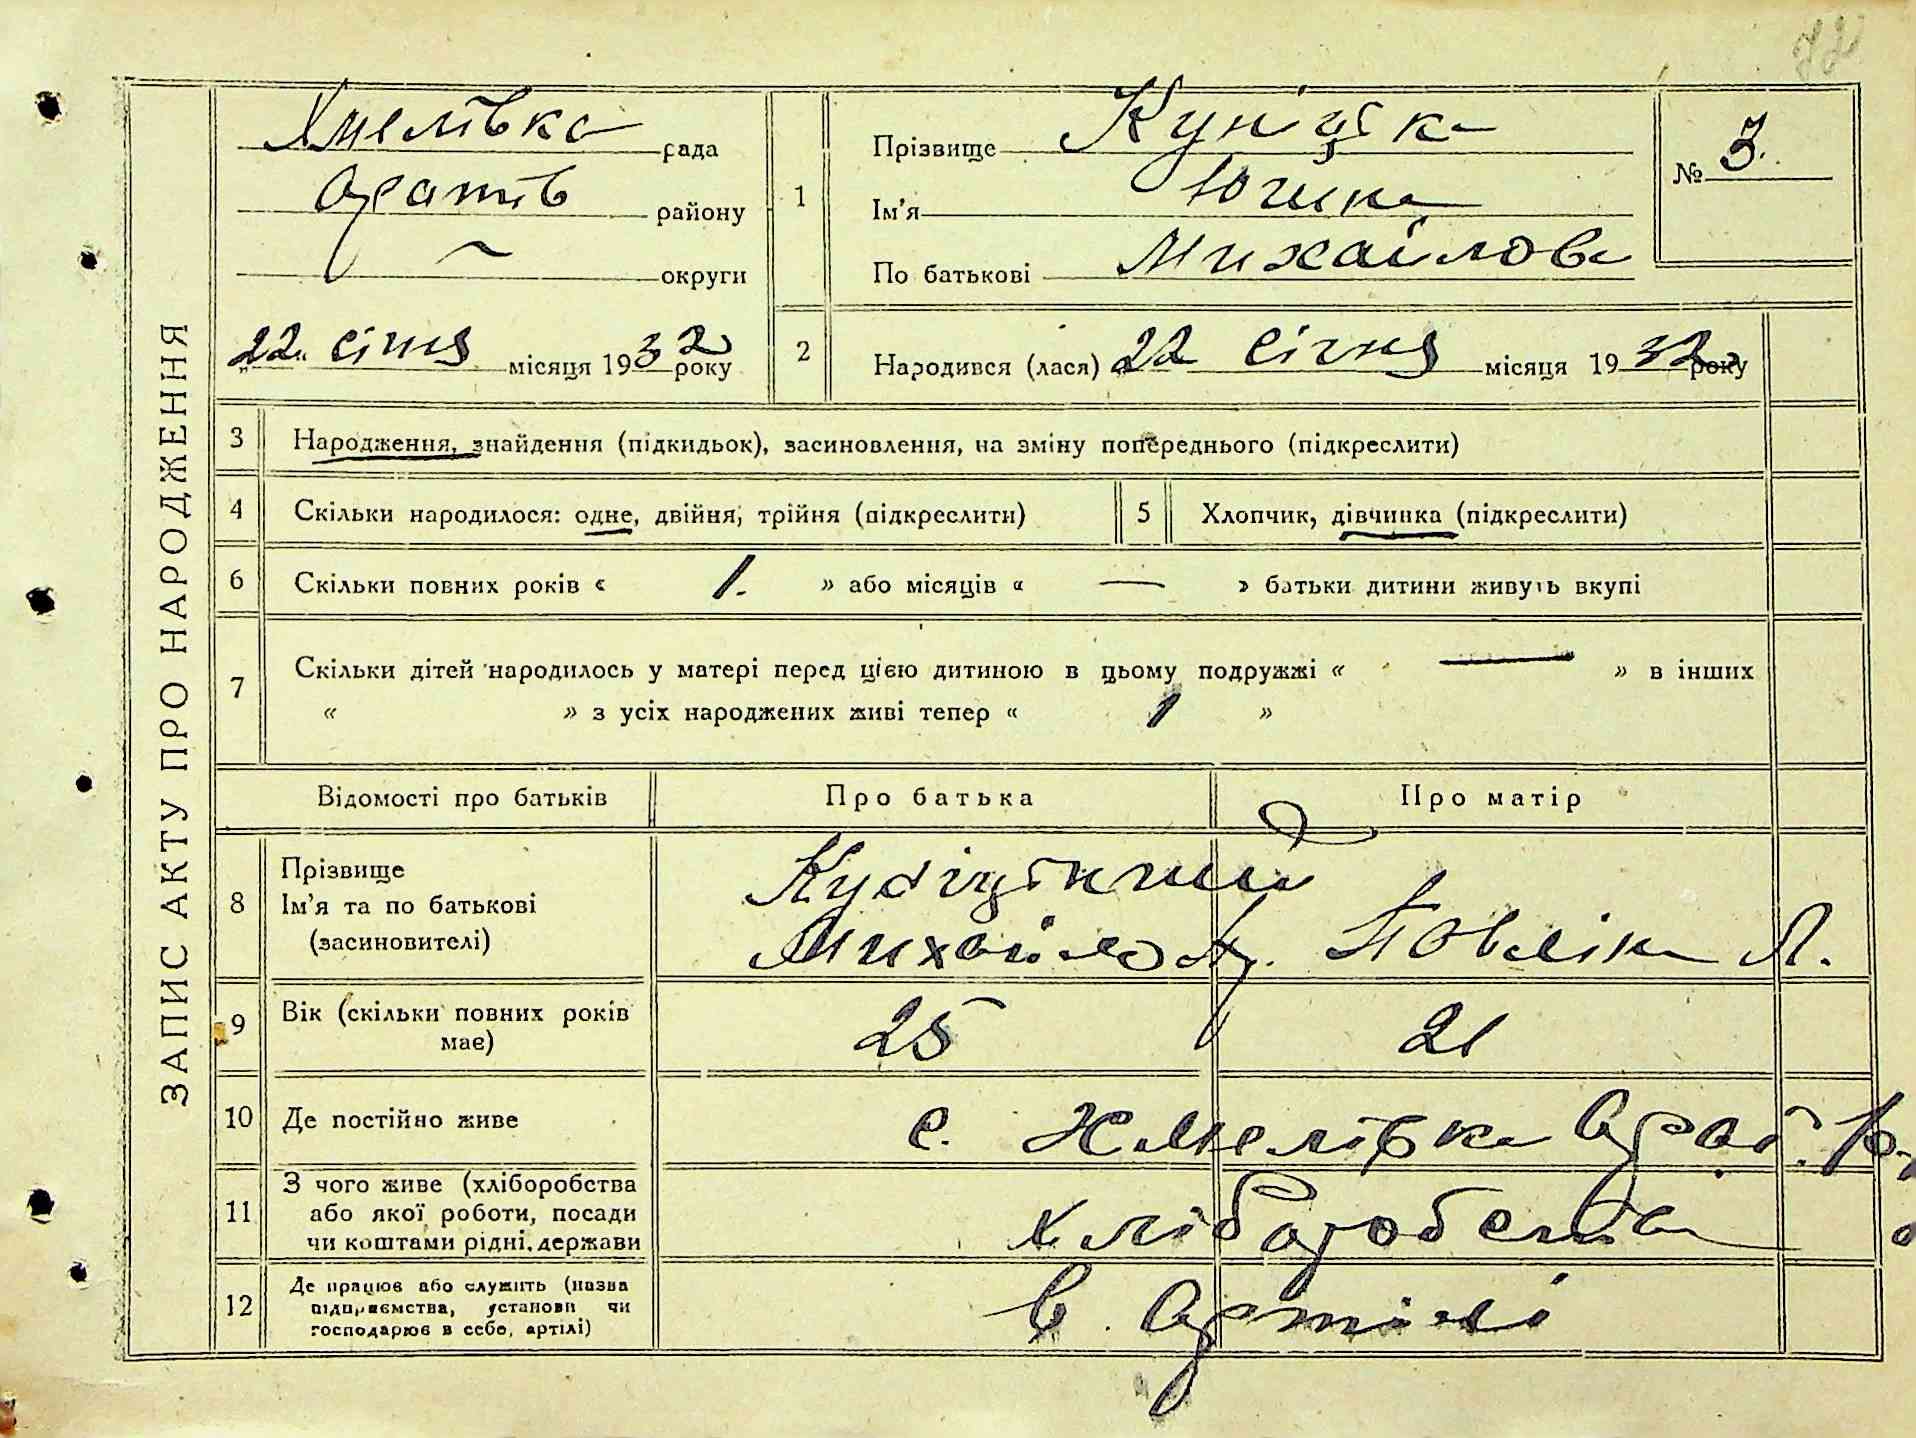 ЗАПИС АКТУ ПРО НАРОДЖЕННЯ
Хмелівка рада
Оратів району
— округи
„22„ січня місяця 1932 року
1
Прізвище Куніцька
Ім'я
По батькові Михайлов
№ 3.
2
Народився (лася) 22 січня місяця 1932 року
3 Народження, знайдення (підкидьок), засиновлення, на зміну попереднього (підкреслити)
4 Скільки народилося: одне, двійня, трійня (підкреслити)
5 Хлопчик, дівчинка (підкреслити)
6 Скільки повних років « 1. » або місяців « — » батьки дитини живуть вкупі
7 Скільки дітей народилось у матері перед цією дитиною в цьому подружжі « — » в інших
« » з усіх народжених живі тепер « 1 »
Відомості про батьків Про батька Про матір
8 Прізвище
Ім'я та по батькові
(засиновителі)
Михайло
Л.
9 Вік (скільки повних років
має)
25 21
10 Де постійно живе с. Хмелівка Орат. Р-
11 З чого живе (хліборобства
або якої роботи, посади
чи коштами рідні, держави
хліборобства
12 Де працює або служить (назва
підприємства, установи чи
господарює в себе, артілі)
в Артілі